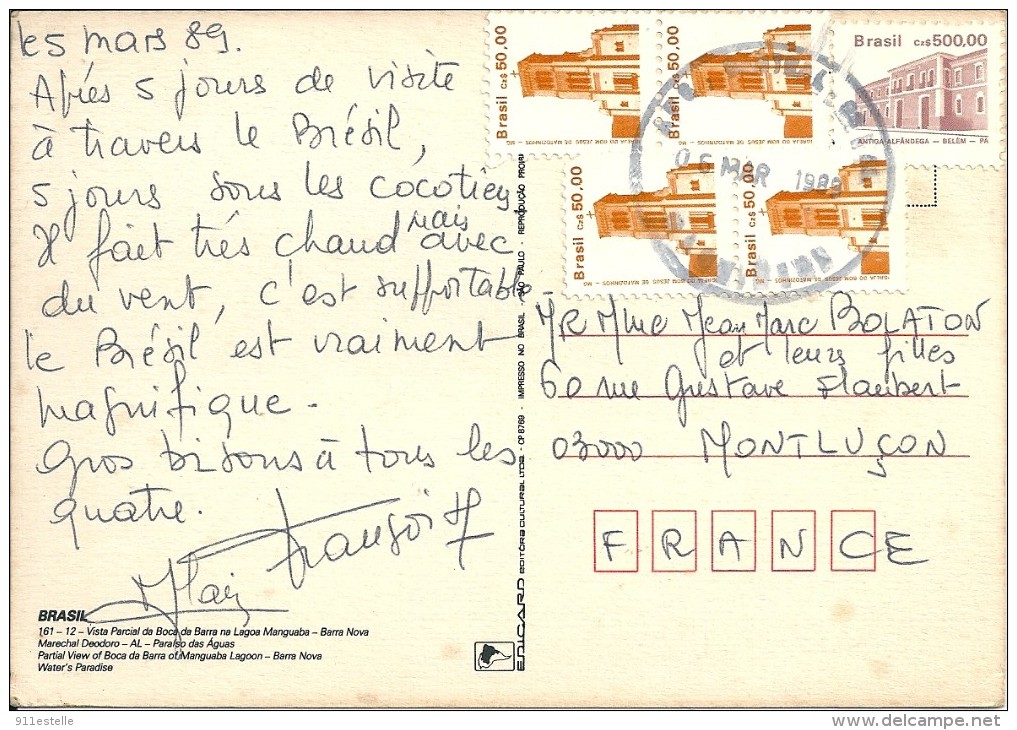 le 5 mars 89.
Après 5 jours de visite
à travers le Brésil,
5 jours sous les cocotiers
Il fait très chaud mais avec
du vent, c'est supportable
le Brésil est vraiment
magnifique.
Gros bisous à tous les
quatre.
Alain Françoise
BRASIL
161 – 12 – Vista Parcial da Boca da Barra na Lagoa Manguaba – Barra Nova
Marechal Deodoro – AL – Paraíso das Águas
Partial View of Boca da Barra of Manguaba Lagoon – Barra Nova
Water's Paradise
EDICARD EDITORA CULTURAL LTDA - CP 8769 - IMPRESSO NO BRASIL - SÃO PAULO - REPRODUÇÃO PROIB
Brasil Cz$ 50,00
IGREJA DO BOM JESUS DE MATOZINHOS – MG
Brasil Cz$ 50,00
IGREJA DO BOM JESUS DE MATOZINHOS – MG
Brasil Cz$ 500,00
ANTIGA ALFÂNDEGA – BELÉM – PA
Brasil Cz$ 50,00
IGREJA DO BOM JESUS DE MATOZINHOS – MG
Brasil Cz$ 50,00
IGREJA DO BOM JESUS DE MATOZINHOS – MG
06 MAR 1989
MR Mme Jean Marc BOLATON
et leurs filles
60 rue Gustave Flaubert
03000 MONTLUÇON
FRANCE
911estelle
www.delcampe.net